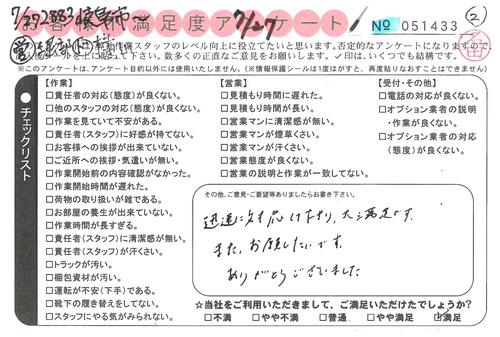 お客様満足度アンケート
7/27
№ 051433
②
スタッフのレベル向上に役立てたいと思います。否定的なアンケートになりますので
数多くの正直なご意見をお願いします。✓印は、いくつでも結構です。
※このアンケートは、アンケート目的以外には使用いたしません。(※情報保護シールは1度はがすと、再度貼りなおすことはできません)
チェックリスト
【作業】
□責任者の対応(態度)が良くない。
□他のスタッフの対応(態度)が良くない。
□作業を見ていて不安がある。
□責任者(スタッフ)に好感が持てない。
□お客様への挨拶が出来ていない。
□ご近所への挨拶・気遣いが無い。
□作業開始前の内容確認がなかった。
□作業開始時間が遅れた。
□荷物の取り扱いが雑である。
□お部屋の養生が出来ていない。
□作業時間が長すぎる。
□責任者(スタッフ)に清潔感が無い。
□責任者(スタッフ)が汗くさい。
□トラックが汚い。
□梱包資材が汚い。
□運転が不安(下手)である。
□靴下の履き替えをしてない。
□スタッフにやる気がみられない。
【営業】
□見積もり時間に遅れた。
□見積もり時間が長い。
□営業マンに清潔感が無い。
□営業マンが煙草くさい。
□営業マンが汗くさい。
□営業態度が良くない。
□営業の説明と作業が一致してない。
【受付・その他】
□電話の対応が良くない。
□オプション業者の説明
・作業が良くない。
□オプション業者の対応
(態度)が良くない。
その他、ご意見・ご要望等ありましたらお書き下さい。
迅速に対応して下さり、大満足です。
また、お願いしたいです。
ありがとうございました
☆当社をご利用いただきまして、ご満足いただけたでしょうか?
□不満 □やや不満 □普通 □やや満足 ☑満足